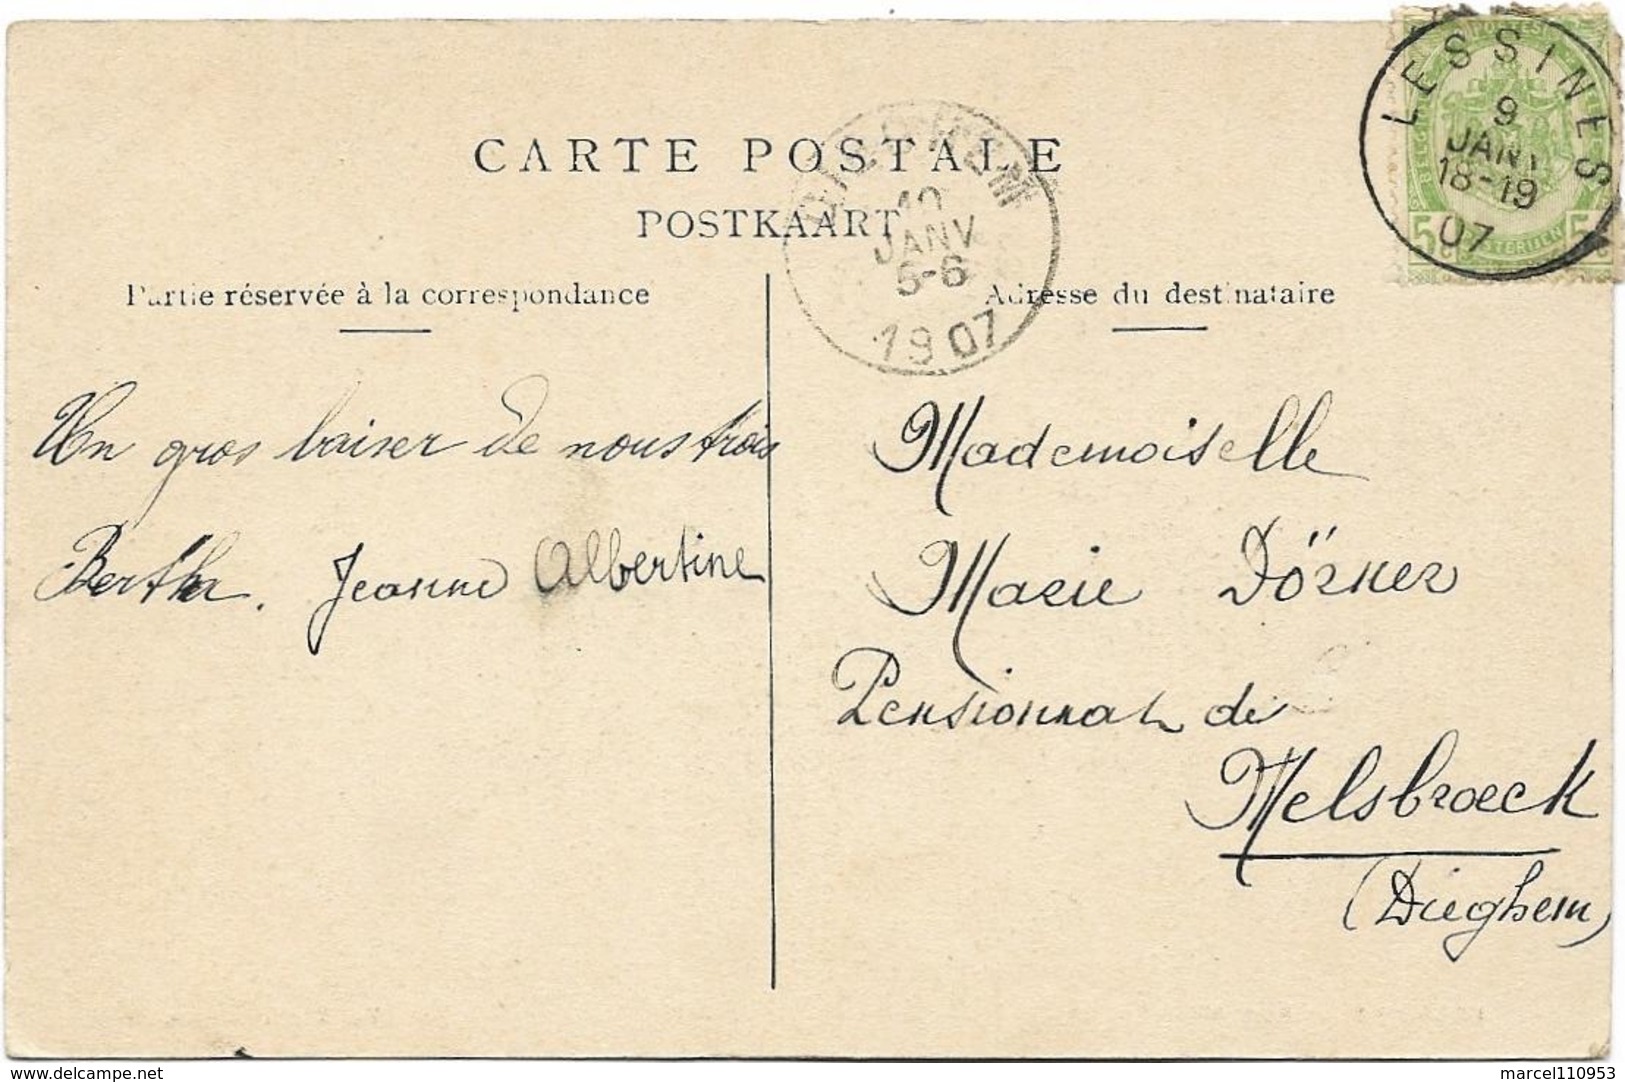 CARTE POSTALE
POSTKAART
Partie réservée à la correspondance
Adresse du destinataire
LESSINES
9
JANV
18-19
07
10
JANV
5-6
1907
5 5
Un gros baiser de nous trois
Bertha. Jeanne Albertine
Mademoiselle
Marie Dörner
Pensionnat de
Melsbroeck
(Dieghem)
delcampe.net
marcel110953